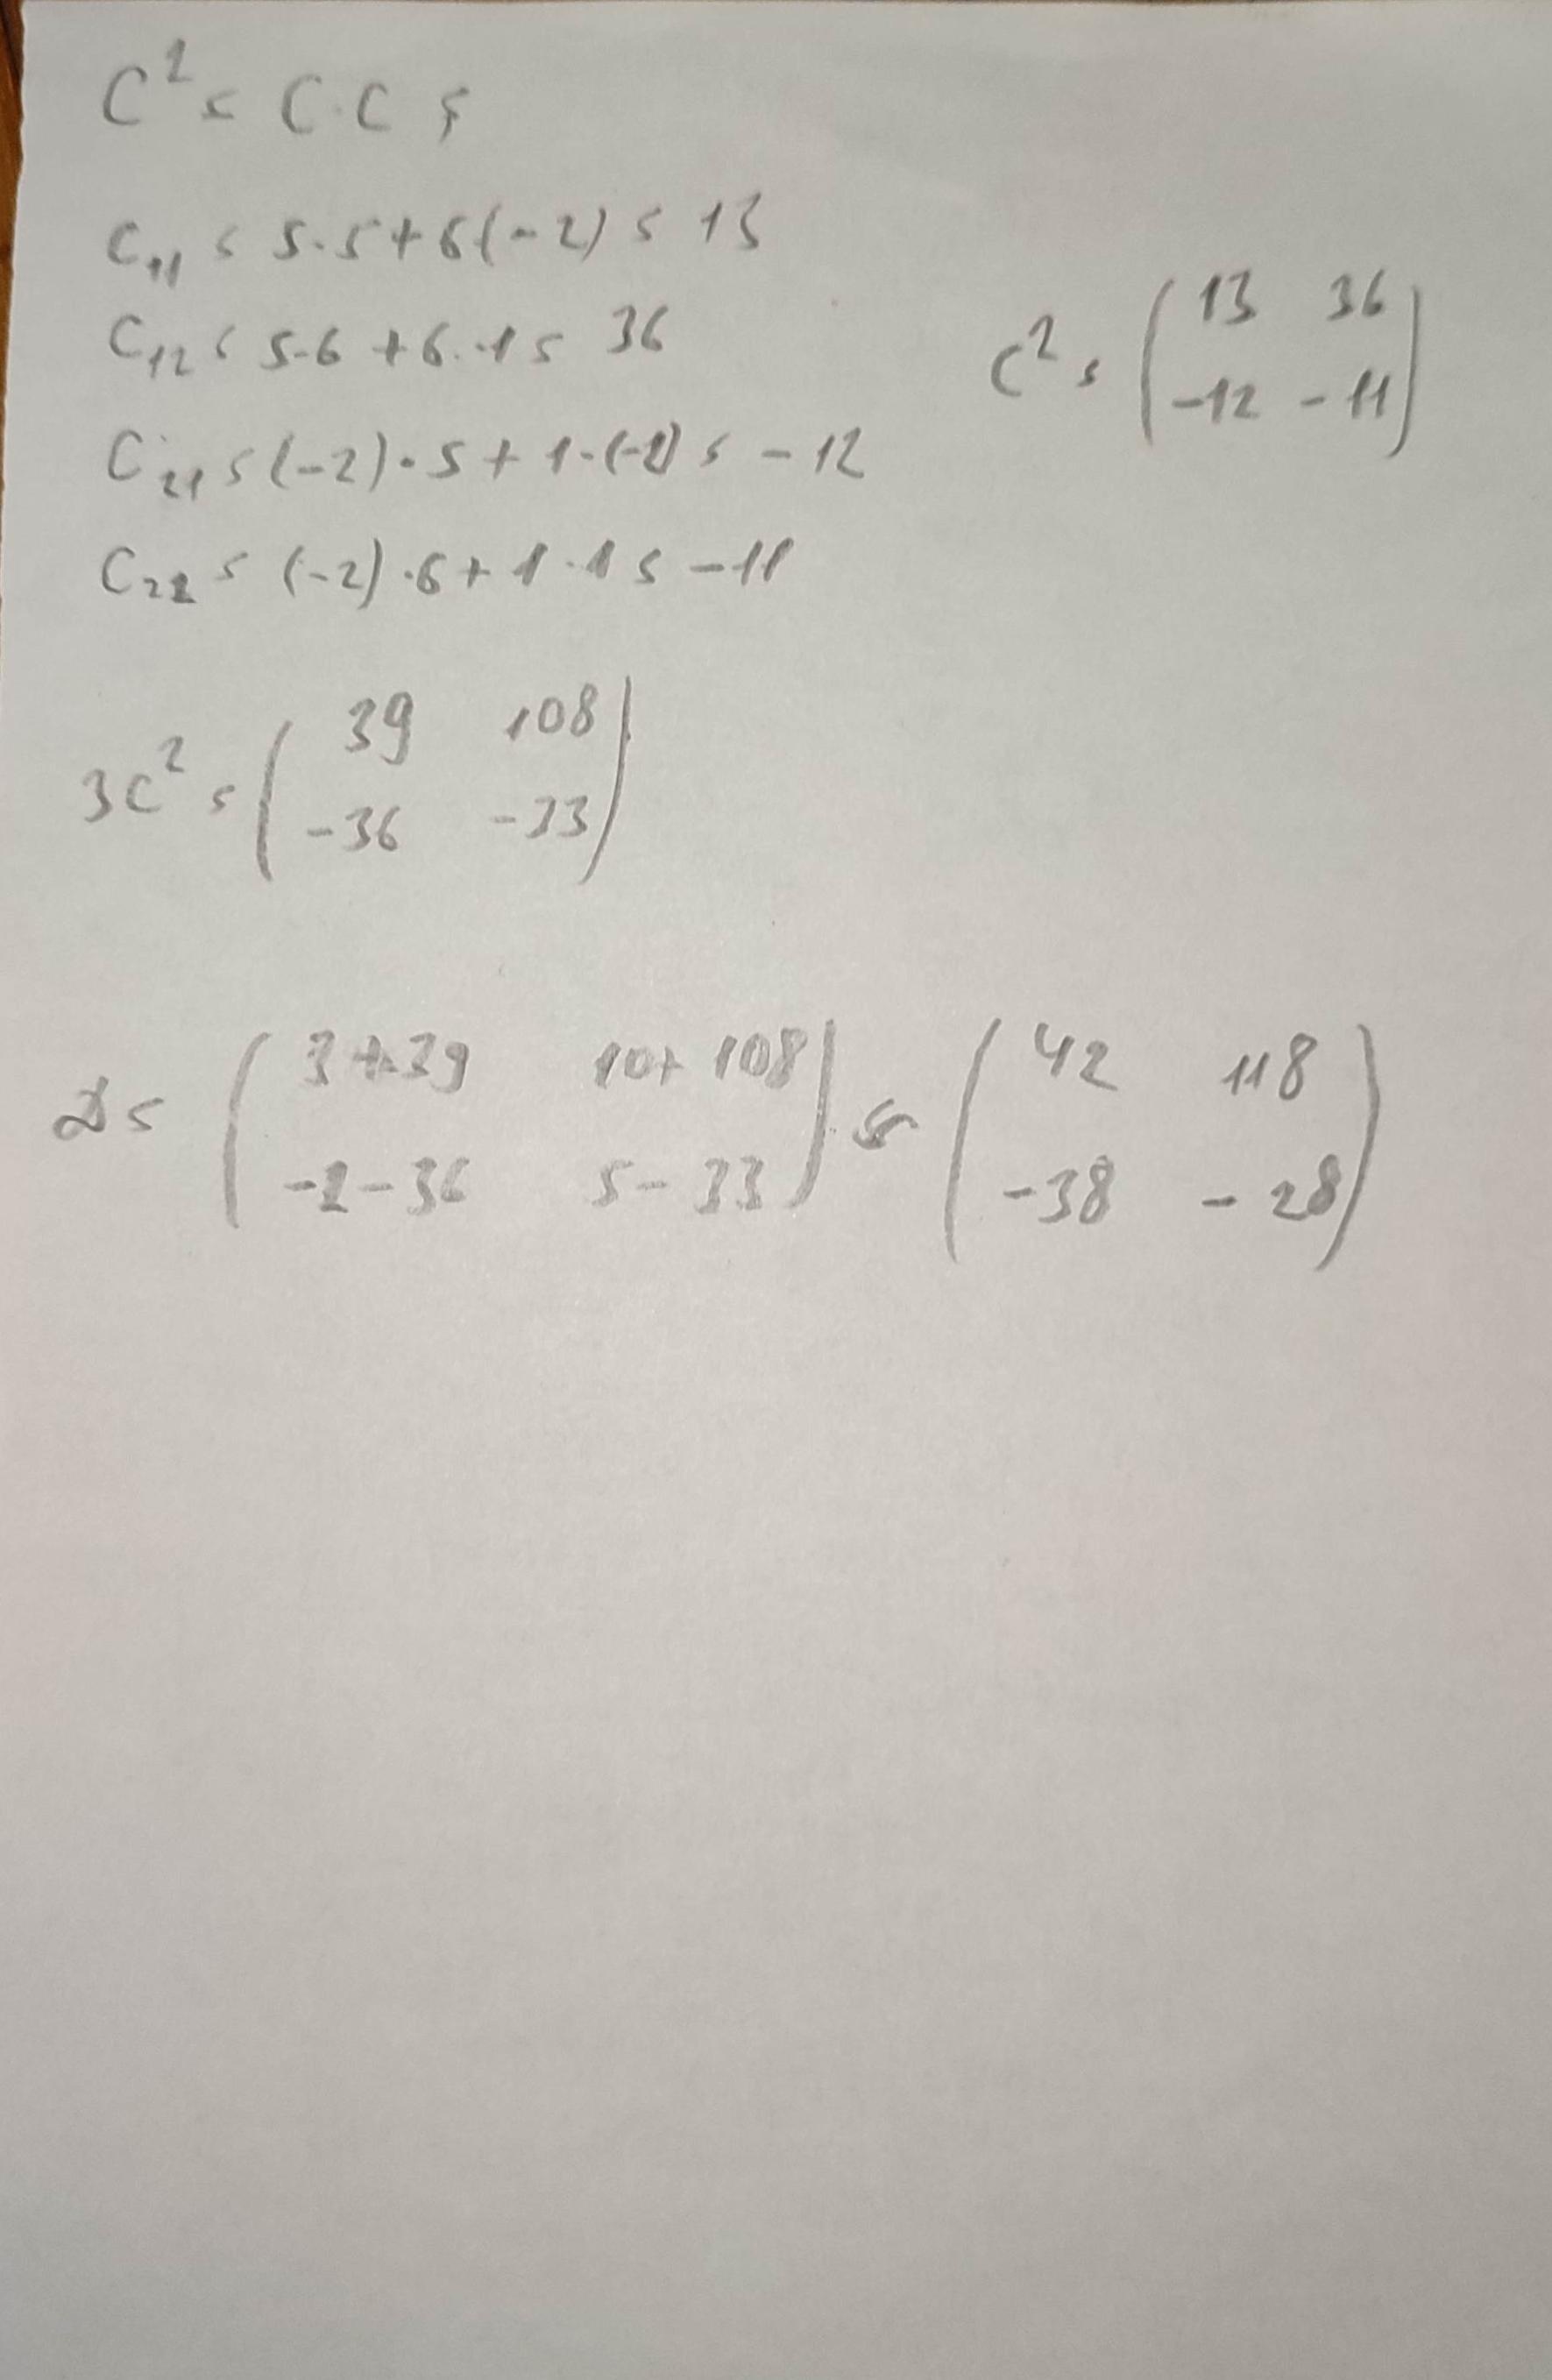 C² = C·C =
C₁₁ = 5·5+6(-2) = 13
C₁₂ = 5·6 +6·1 = 36
C₂₁ = (-2)·5 + 1·(-2) = -12
C₂₂ = (-2)·6+1·1 = -11
C² = (13 36
-12 -11)
3C² = (39 108
-36 -33)
D = (3+39 10+108
-2-36 5-33) = (42 118
-38 -28)